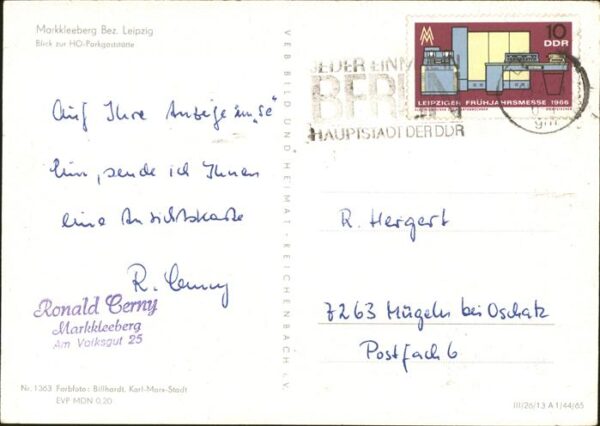 Markkleeberg Bez. Leipzig
Blick zur HO-Parkgaststätte
Auf Ihre Anzeige im „se"
hin, sende ich Ihnen
eine Ansichtskarte
R. Cerny
Ronald Cerny
Markkleeberg
Am Volksgut 25
Nr. 1363 Farbfoto: Billhardt, Karl-Marx-Stadt
EVP MDN 0,20
VEB BILD UND HEIMAT · REICHENBACH i. V.
JEDER EINMAL IN
BERLIN
HAUPTSTADT DER DDR
10
DDR
LEIPZIGER FRÜHJAHRSMESSE 1966
R. Hergert
7263 Mügeln bei Oschatz
Postfach 6
III/26/13 A 1/44/65